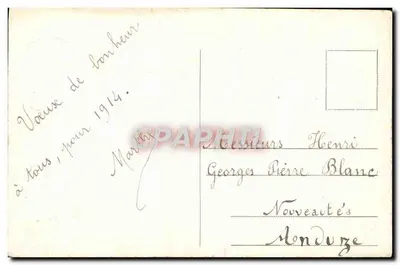 Vœux de bonheur
à tous, pour 1914.
Messieurs Henri
Georges Pierre Blanc
Nouveautés
Anduze